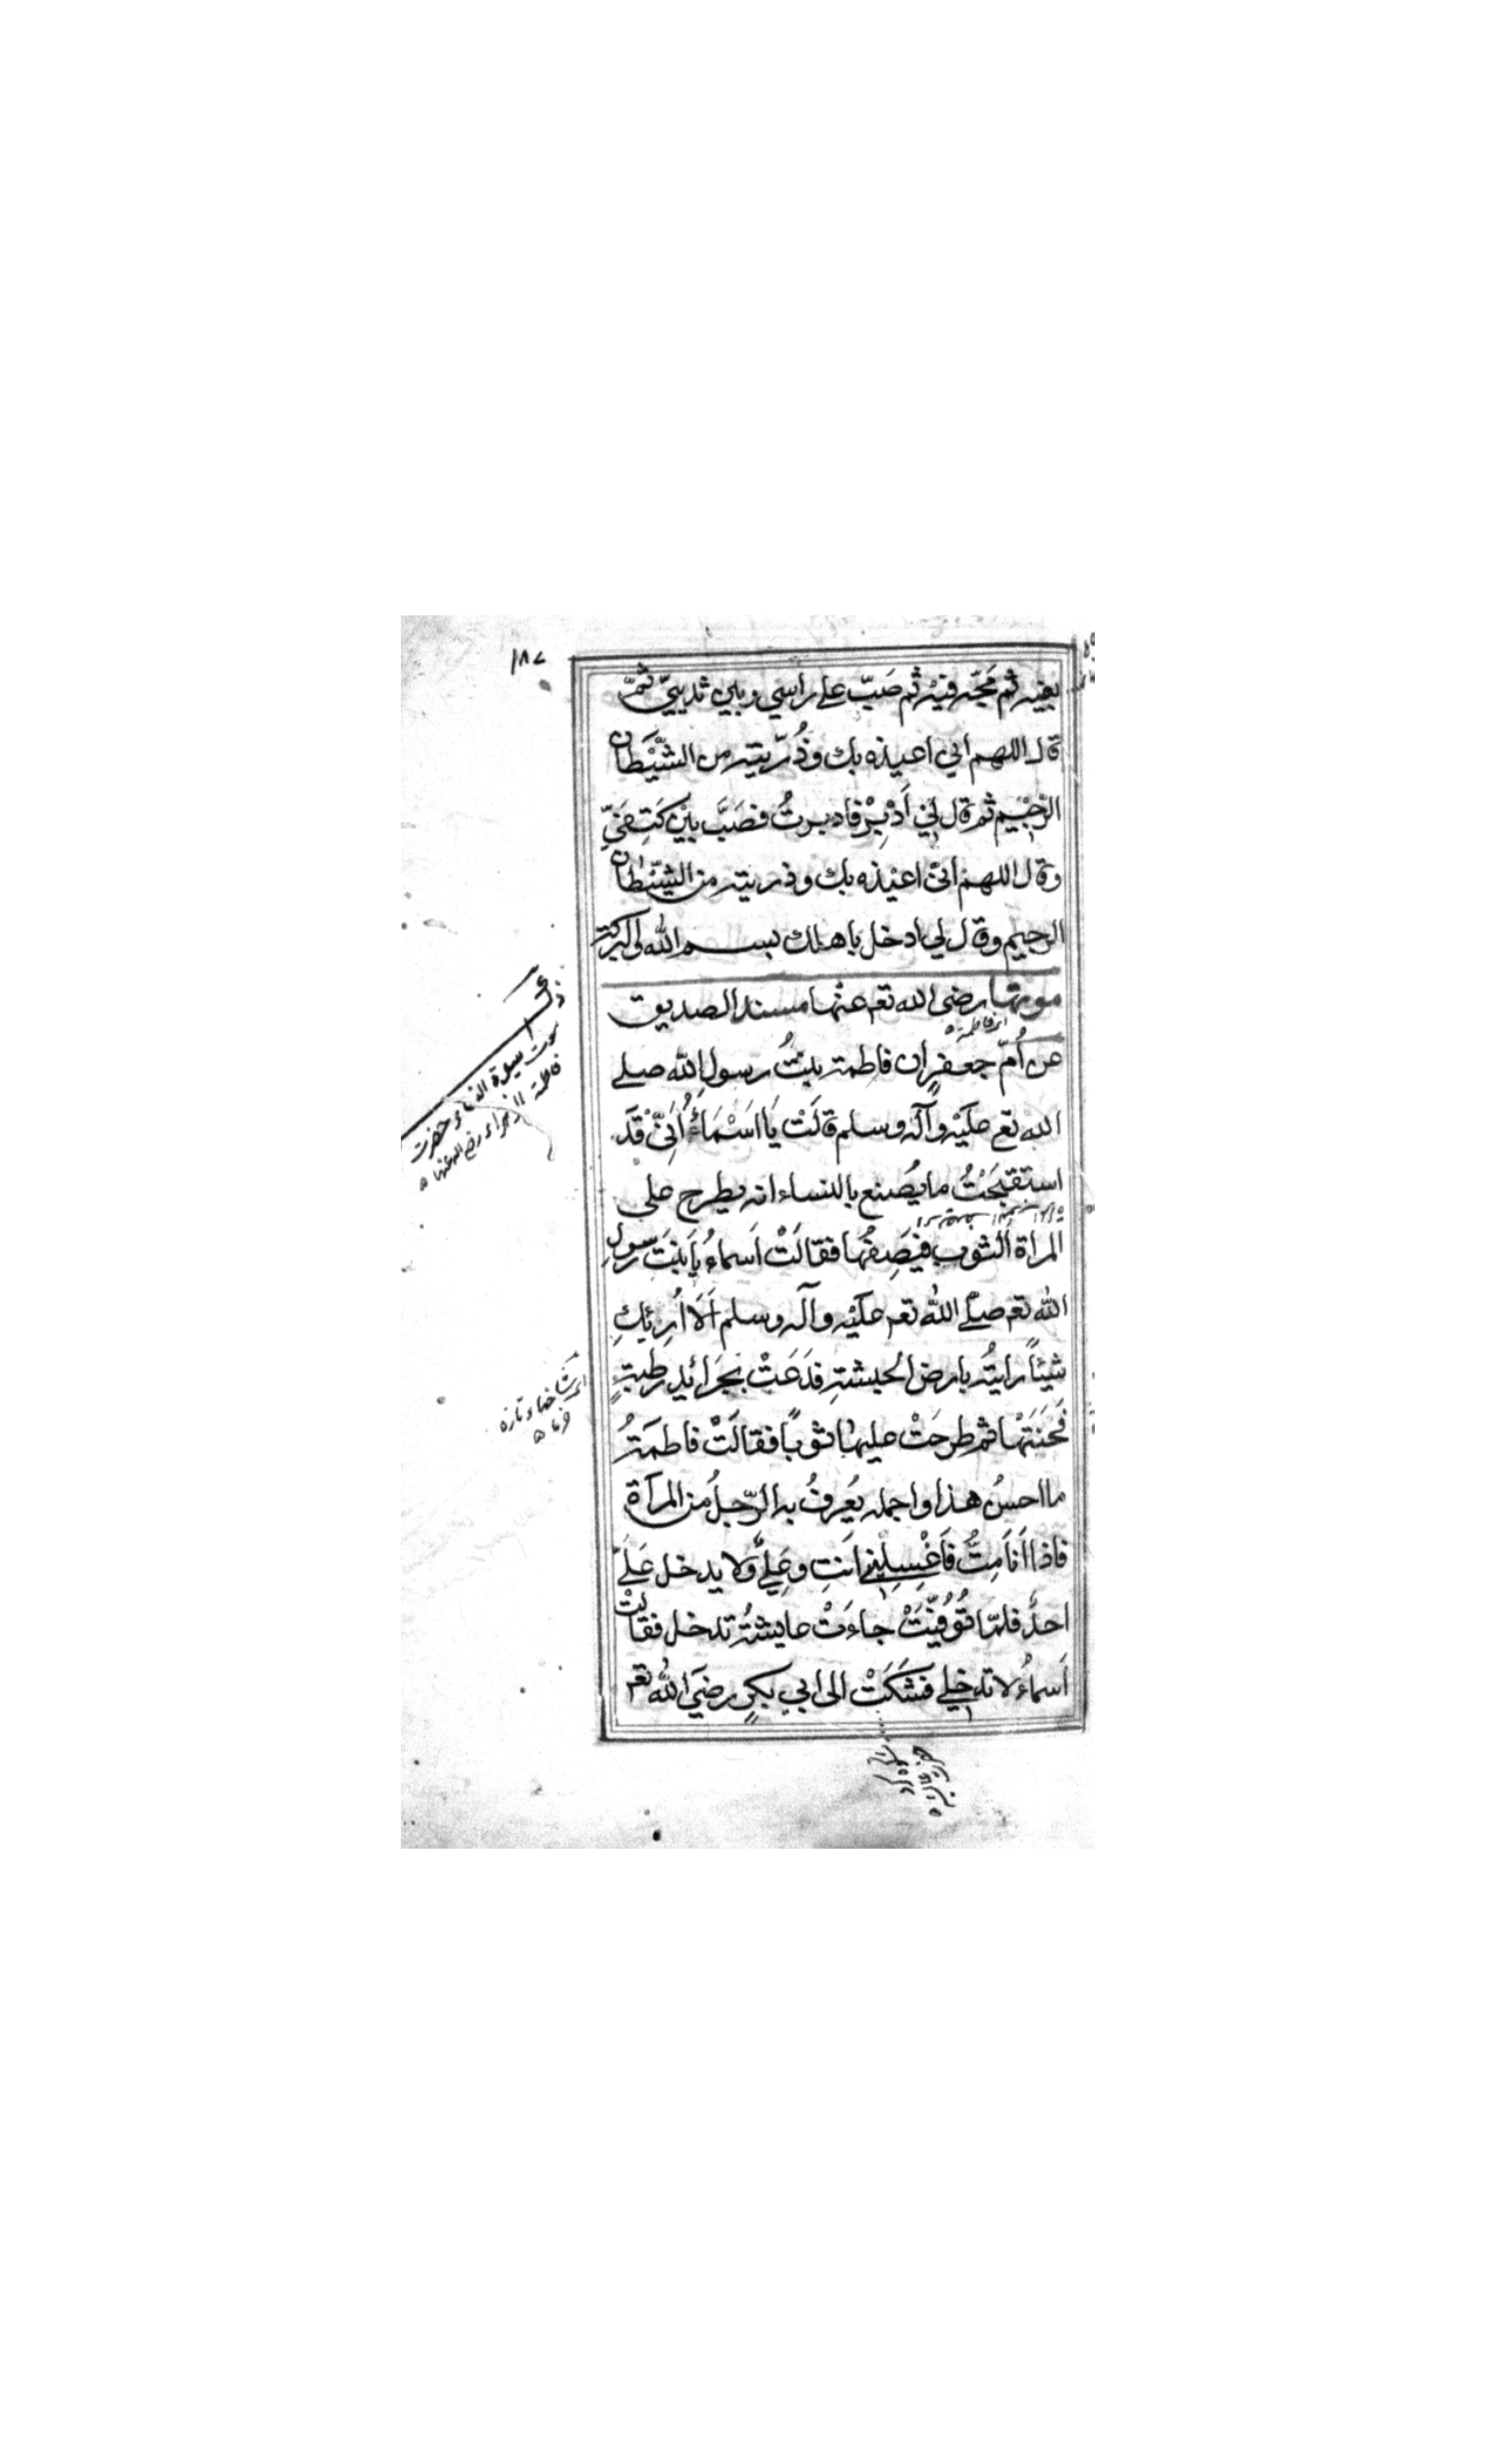 ١٨٧
بفيه ثم مجّه فيه ثم صَبّ على راسي وبين ثدييّ ثمّ
قال اللهم اني اعيذه بك وذُرّيته من الشّيْطان
الرّجيْم ثم قال لِيْ اَدْبِرْ فادبرتُ فصَبَّ بَيْن كَتِفَيّ
وقال اللهم انّى اعيْذه بك وذريته من الشّيْطان
الرجيم وقال لي ادخل باهلك بسم الله والبركة
موتها رضى الله تعم عنها مسند الصديق
عن اُمّ جعفرٍ ان فاطمة بنتُ رسولِ الله صلے
الله تعم عليْه وآله وسلم قالَتْ يَا اَسْمَاءُ اِنّى قَدْ
استقبَحْتُ ما يُصْنع بالنساء انه يطرح على
المراة الثوب فيَصِفُها فقالَتْ اَسماءُ يا بنتَ رسولِ
الله تعم صلے الله تعم عليْه وآله وسلم اَلَا اُرِيْكِ
شيئًا رايتُه بارض الحبشةِ فدَعَتْ بجَرائدِ رطبةٍ
فحَنَتْها ثم طرحَتْ عليها ثوبًا فقالَتْ فاطمَةُ
ما احسنُ هذا واجمله يُعرفُ به الرّجلُ من المرأة
فاذا اَنا مِتُّ فَاغْسِلِيْنِي اَنتِ وعَلِيٌّ ولا يدخل عَلَيّ
احدٌ فلمّا تُوُفِّيَتْ جاءَتْ عايشةُ تدخل فقالَتْ
اَسماءُ لا تدخلي فشكَتْ الى ابي بكرٍ رضىَ الله تعم
ذكر
موت سيدة النساء حضرت
فاطمة الزهراء رضى الله عنها
شاخهاء تازه